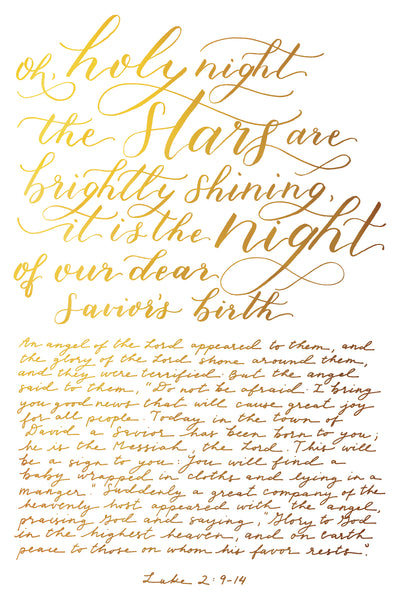 oh, holy night
the stars are
brightly shining,
it is the night
of our dear
Savior's birth
An angel of the Lord appeared to them, and
the glory of the Lord shone around them,
and they were terrified. But the angel
said to them, "Do not be afraid. I bring
you good news that will cause great joy
for all people. Today in the town of
David a Savior has been born to you;
he is the Messiah, the Lord. This will
be a sign to you: You will find a
baby wrapped in cloths and lying in a
manger." Suddenly a great company of the
heavenly host appeared with the angel,
praising God and saying, "Glory to God
in the highest heaven, and on earth
peace to those on whom his favor rests".
Luke 2:9-14